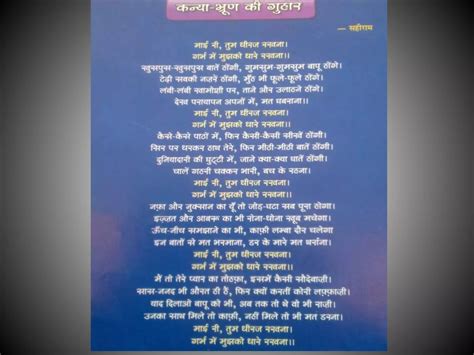 कन्या-भ्रूण की गुहार
— सहीराम
माई री, तुम धीरज रखना।
गर्भ में मुझको धारे रखना।।
खुसपुस-खुसपुस बातें होंगी, गुमसुम-गुमसुम बापू होंगे।
टेढ़ी सबकी नज़रें होंगी, मुँह भी फूले-फूले होंगे।
लंबी-लंबी खामोशी पर, ताने और उलाहने होंगे।
देख परायापन अपनों में, मत घबराना।।
माई री, तुम धीरज रखना।
गर्भ में मुझको धारे रखना।।
कैसे-कैसे पाठों में, फिर कैसी-कैसी सीखें होंगी।
सिर पर धरकर हाथ तेरे, फिर मीठी-मीठी बातें होंगी।
दुनियादारी की घुट्टी में, जाने क्या-क्या घातें होंगी।
चालें गहरी चक्कर भारी, बच के रहना।
माई री, तुम धीरज रखना।
गर्भ में मुझको धारे रखना।।
नफ़ा और नुक्सान का यूँ तो जोड़-घटा सब पूरा होगा।
इज़्ज़त और आबरू का भी रोना-धोना खूब मचेगा।
ऊँच-नीच समझाने का भी, काफ़ी लम्बा दौर चलेगा
इन बातों से मत भरमाना, डर के मारे मत थर्राना।
माई री, तुम धीरज रखना।
गर्भ में मुझको धारे रखना।।
मैं तो तेरे प्यार का तोहफ़ा, इसमें कैसी सौदेबाज़ी।
सास-ननद भी औरत ही हैं, फिर क्यों करतीं कोरी लफ़्फ़ाज़ी।
याद दिलाओ बापू को भी, अब तक तो थे वो भी राज़ी।
उनका साथ मिले तो काफ़ी, नहीं मिले तो भी मत डरना।
माई री, तुम धीरज रखना।
गर्भ में मुझको धारे रखना।।